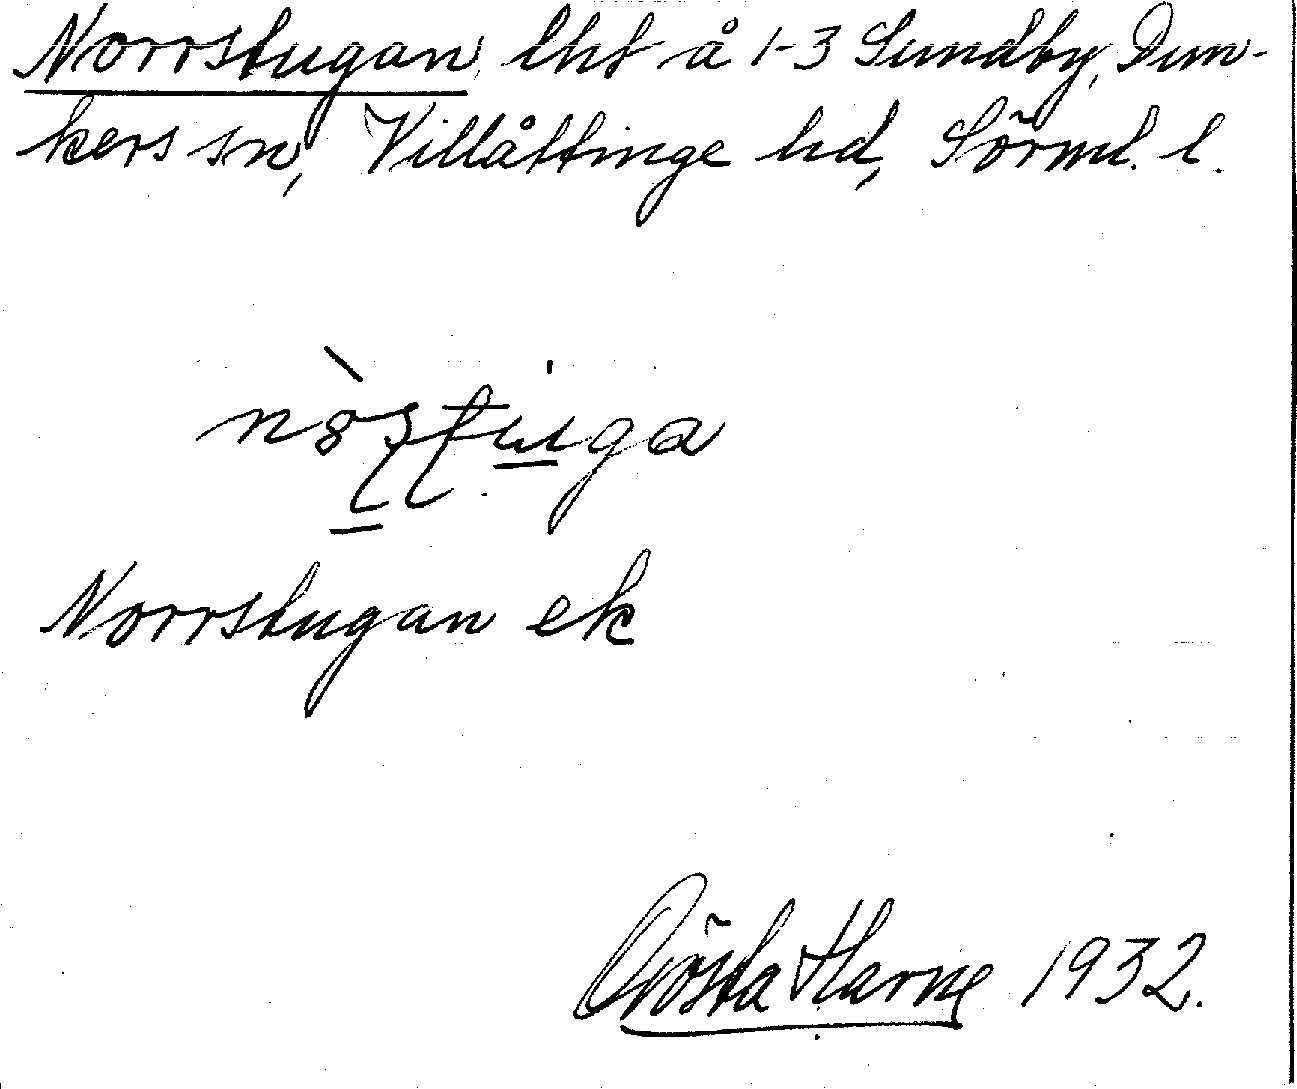 Norrstugan, lht å 1-3 Sundby, Dun-
kers sn, Villåttinge hd, Sörml. l.
Norrstugan ek
Gösta Harne 1932.